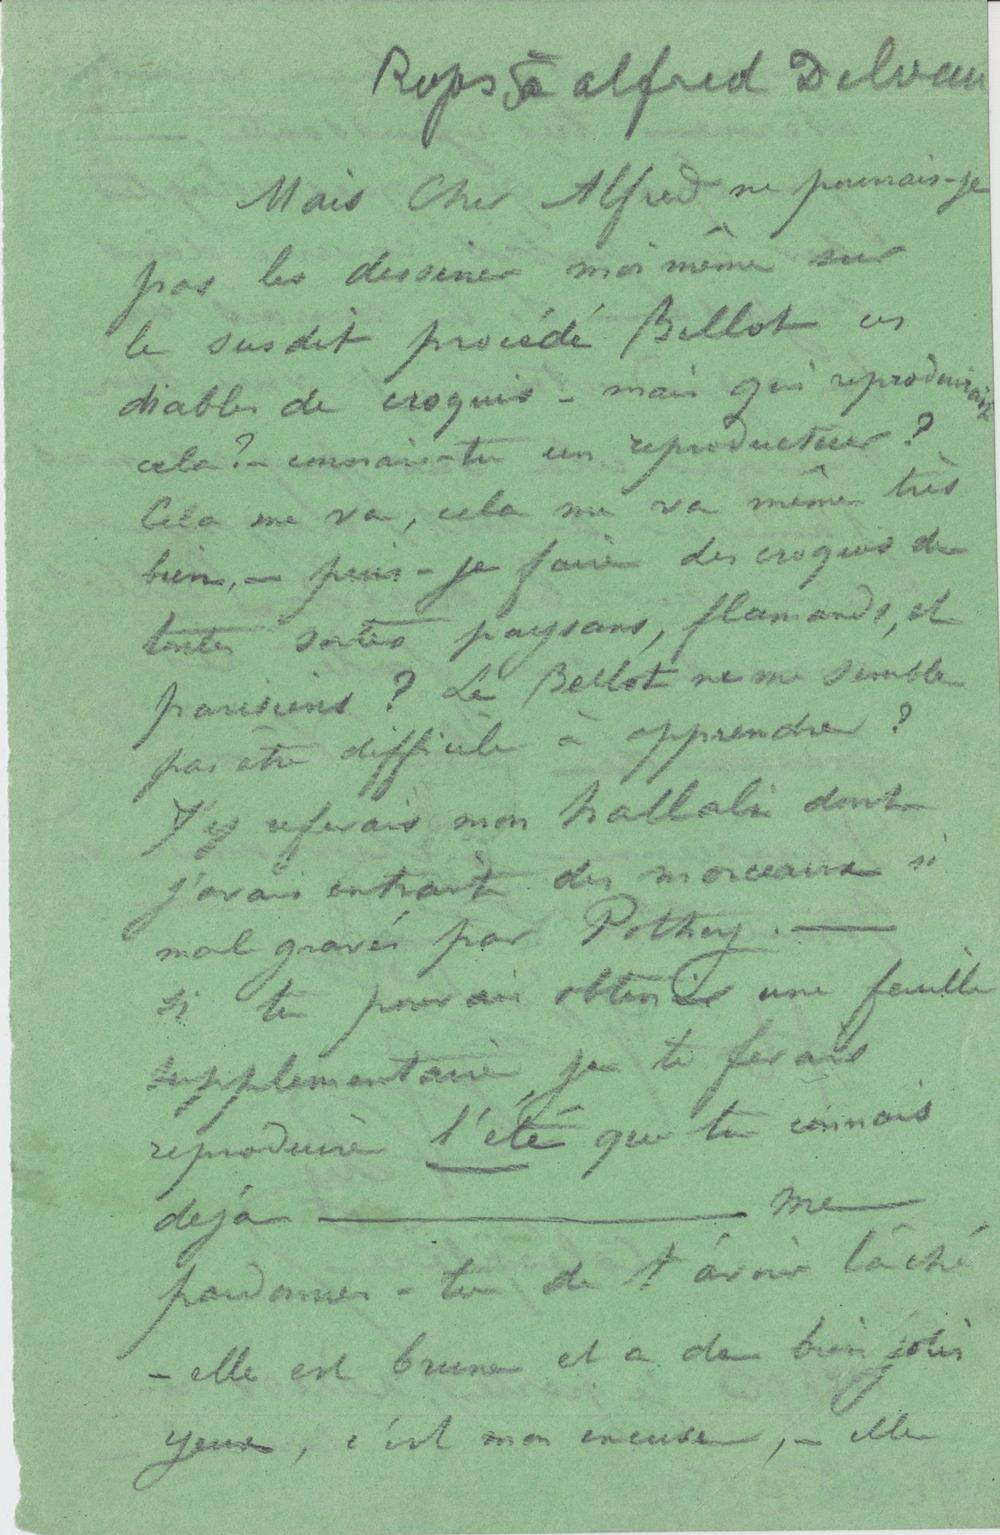 Rops à Alfred Delvau
Mais Cher Alfred ne pourrais-je
pas les dessiner moi même sur
le susdit procédé Bellot ces
diables de croquis – mais qui reproduirait
cela ? – connais-tu un reproducteur ?
Cela me va, cela me va même très
bien, – puis-je faire des croquis de
toutes sortes paysans, flamands, et
parisiens ? Le Bellot ne me semble
pas être difficile à apprendre ?
J'y referais mon hallali dont
j'avais extrait des morceaux si
mal gravés par Pothey. —
si tu pouvais obtenir une feuille
supplementaire, je te ferais
reproduire l'été que tu connais
dejà — me
pardonnes-tu de t'avoir lâché
– elle est brune et a de bien jolis
yeux, c'est mon excuse, – elle